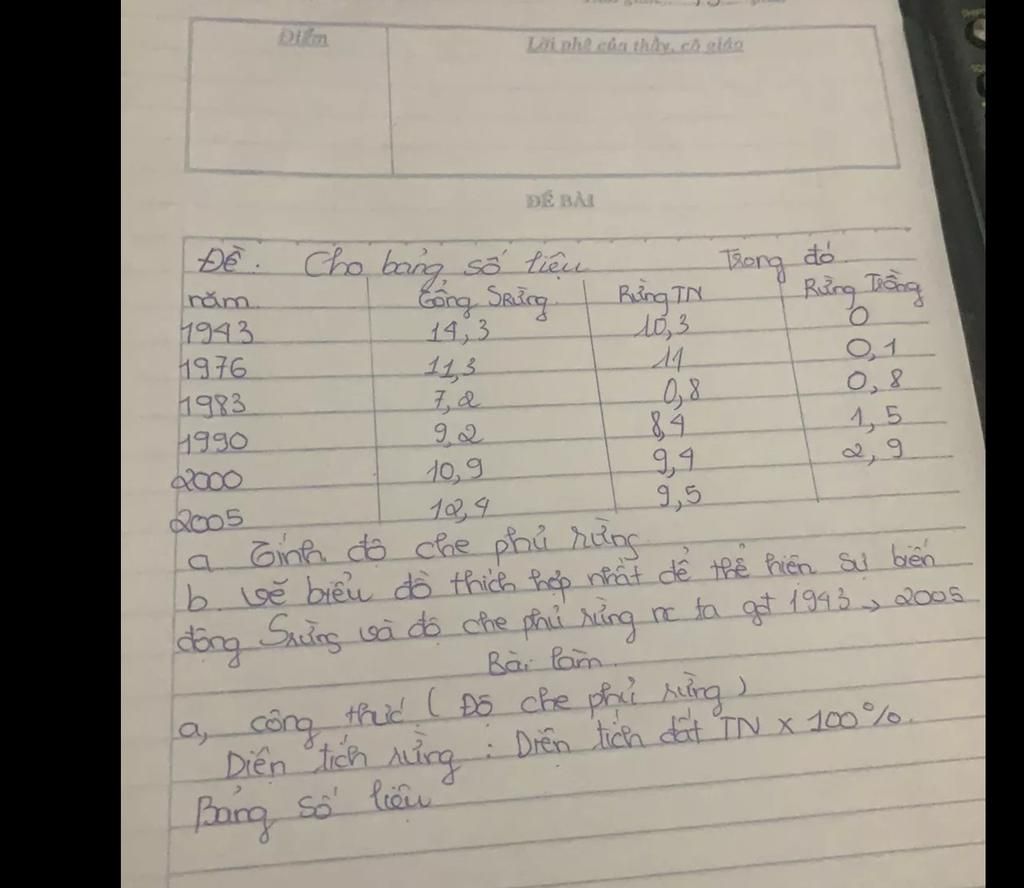 Điểm Lời phê của thầy, cô giáo
ĐỀ BÀI
Đề. Cho bảng số liệu Trong đó
năm Tổng Srừng Rừng TN Rừng Trồng
1943 14,3 10,3 0
1976 11,3 11 0,1
1983 7,2 0,8 0,8
1990 9,2 8,4 1,5
2000 10,9 9,4 2,9
2005 12,4 9,5
a Tính độ che phủ rừng
b. Vẽ biểu đồ thích hợp nhất để thể hiện sự biến
động Srừng và độ che phủ rừng nc ta gđ 1943 → 2005
Bài làm.
a, công thức (Độ che phủ rừng)
Diện tích rừng : Diện tích đất TN x 100%.
Bảng số liệu